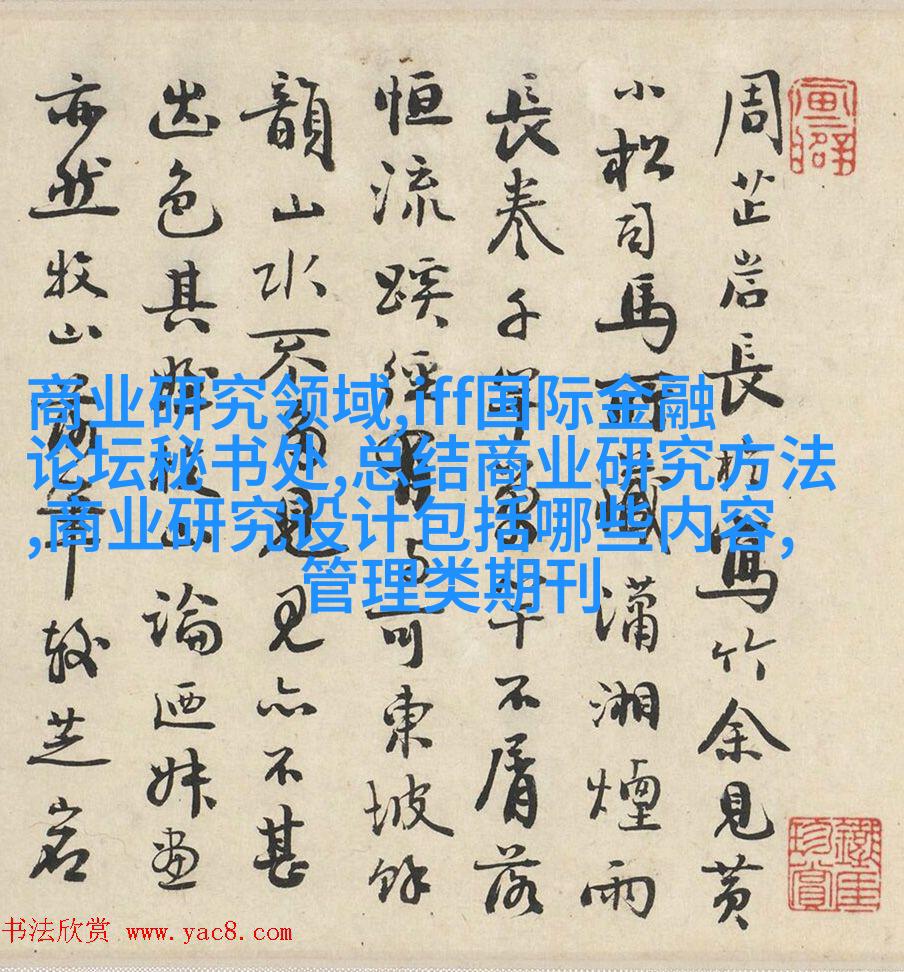 周芷岩長於寫竹余見黄
小松司馬所藏瀟湘煙雨
長卷千竿萬竿不屑落
恒流蹊徑与可東坡餘
韻山水不多見見亦不甚
出色其山論迺妹畫
亦然牧山筆較芝岩
商业研究领域,iff国际金融
论坛秘书处,总结商业研究方法
,商业研究设计包括哪些内容,
管理类期刊
书法欣赏 www.yac8.com